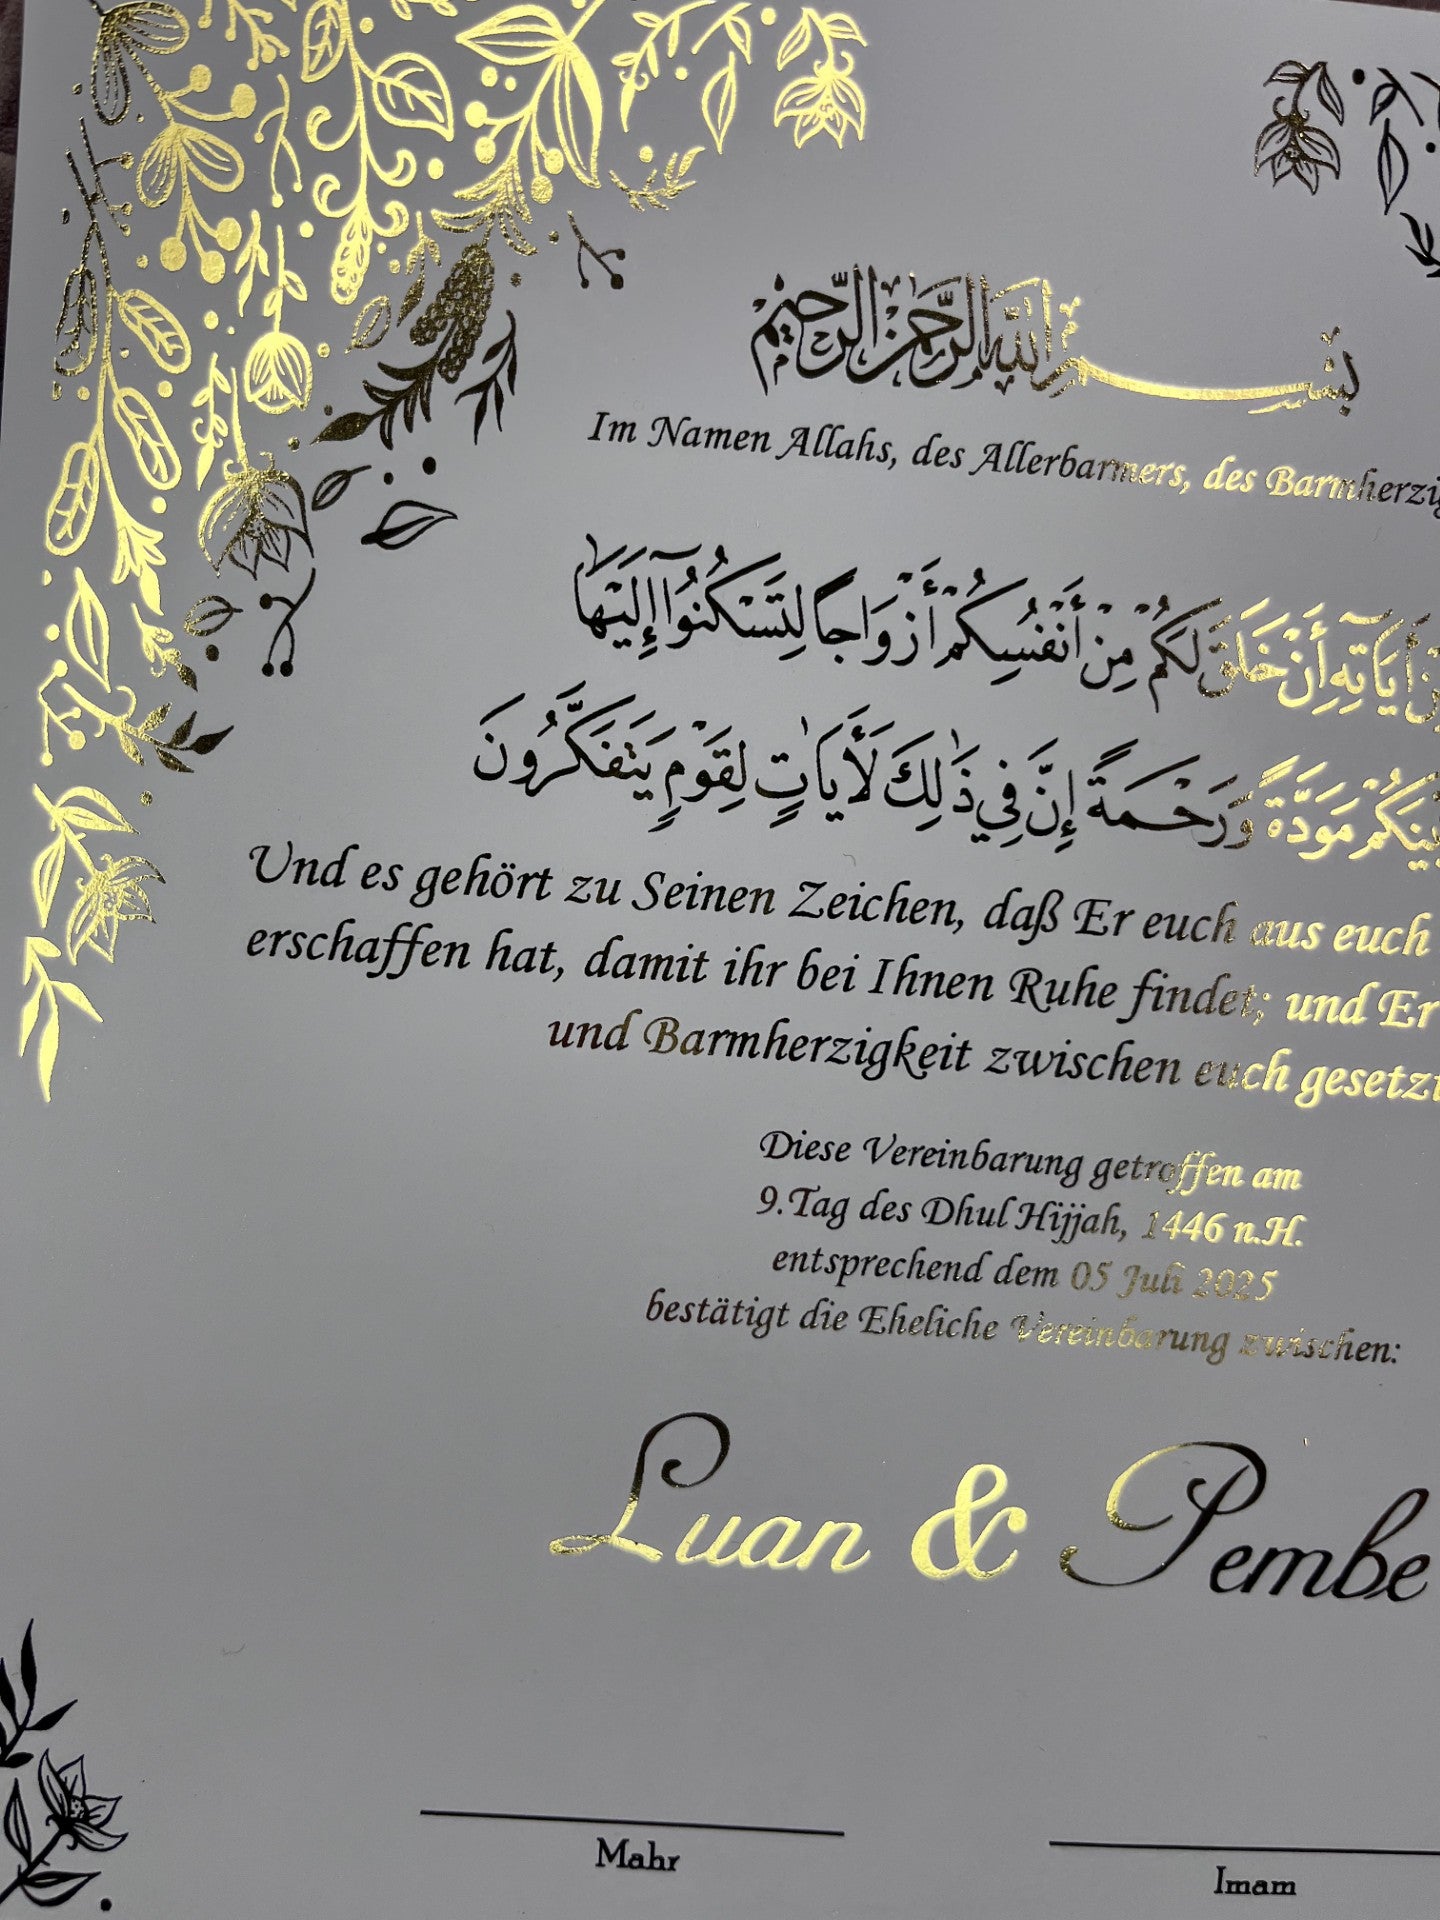 بسم الله الرحمن الرحيم
Im Namen Allahs, des Allerbarmers, des Barmherzig
آيَاتِهِ أَنْ خَلَقَ لَكُمْ مِنْ أَنْفُسِكُمْ أَزْوَاجًا لِتَسْكُنُوا إِلَيْهَا
بَيْنَكُمْ مَوَدَّةً وَرَحْمَةً إِنَّ فِي ذَلِكَ لَأَيَاتٍ لِقَوْمٍ يَتَفَكَّرُونَ
Und es gehört zu Seinen Zeichen, daß Er euch aus euch
erschaffen hat, damit ihr bei Ihnen Ruhe findet; und Er
und Barmherzigkeit zwischen euch gesetzt
Diese Vereinbarung getroffen am
9.Tag des Dhul Hijjah, 1446 n.H.
entsprechend dem 05 Juli 2025
bestätigt die Eheliche Vereinbarung zwischen:
Luan & Pembe
Mahr
Imam